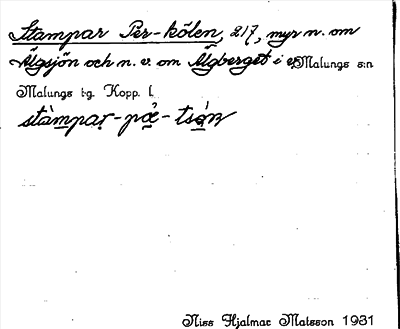 Stampar Per-kölen, 217, myr n. om
Älgsjön och n. v. om Älgberget i v. Malungs s:n
Malungs t:g. Kopp. l.
stàmpaṛ-pæ̣-tsǫ́n
Niss Hjalmar Matsson 1931